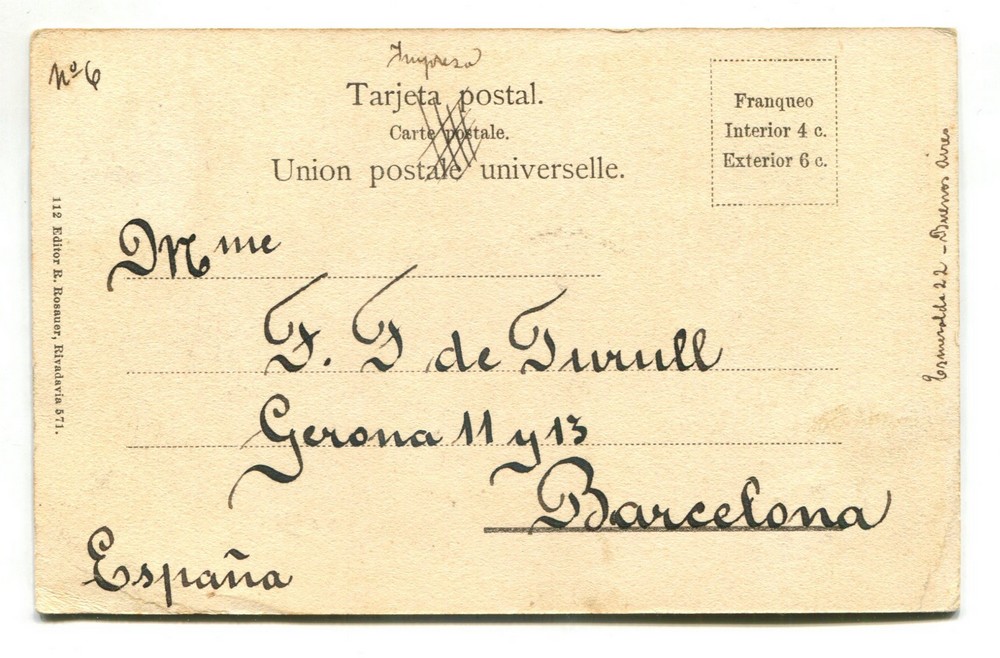 Nº 6
Impreso
Tarjeta postal.
Carte postale.
Union postale universelle.
Franqueo
Interior 4 c.
Exterior 6 c.
Mme
F. F de Turull
Gerona 11 y 13
Barcelona
España
112 Editor R. Rosauer, Rivadavia 571.
Esmeralda 22 - Buenos Aires